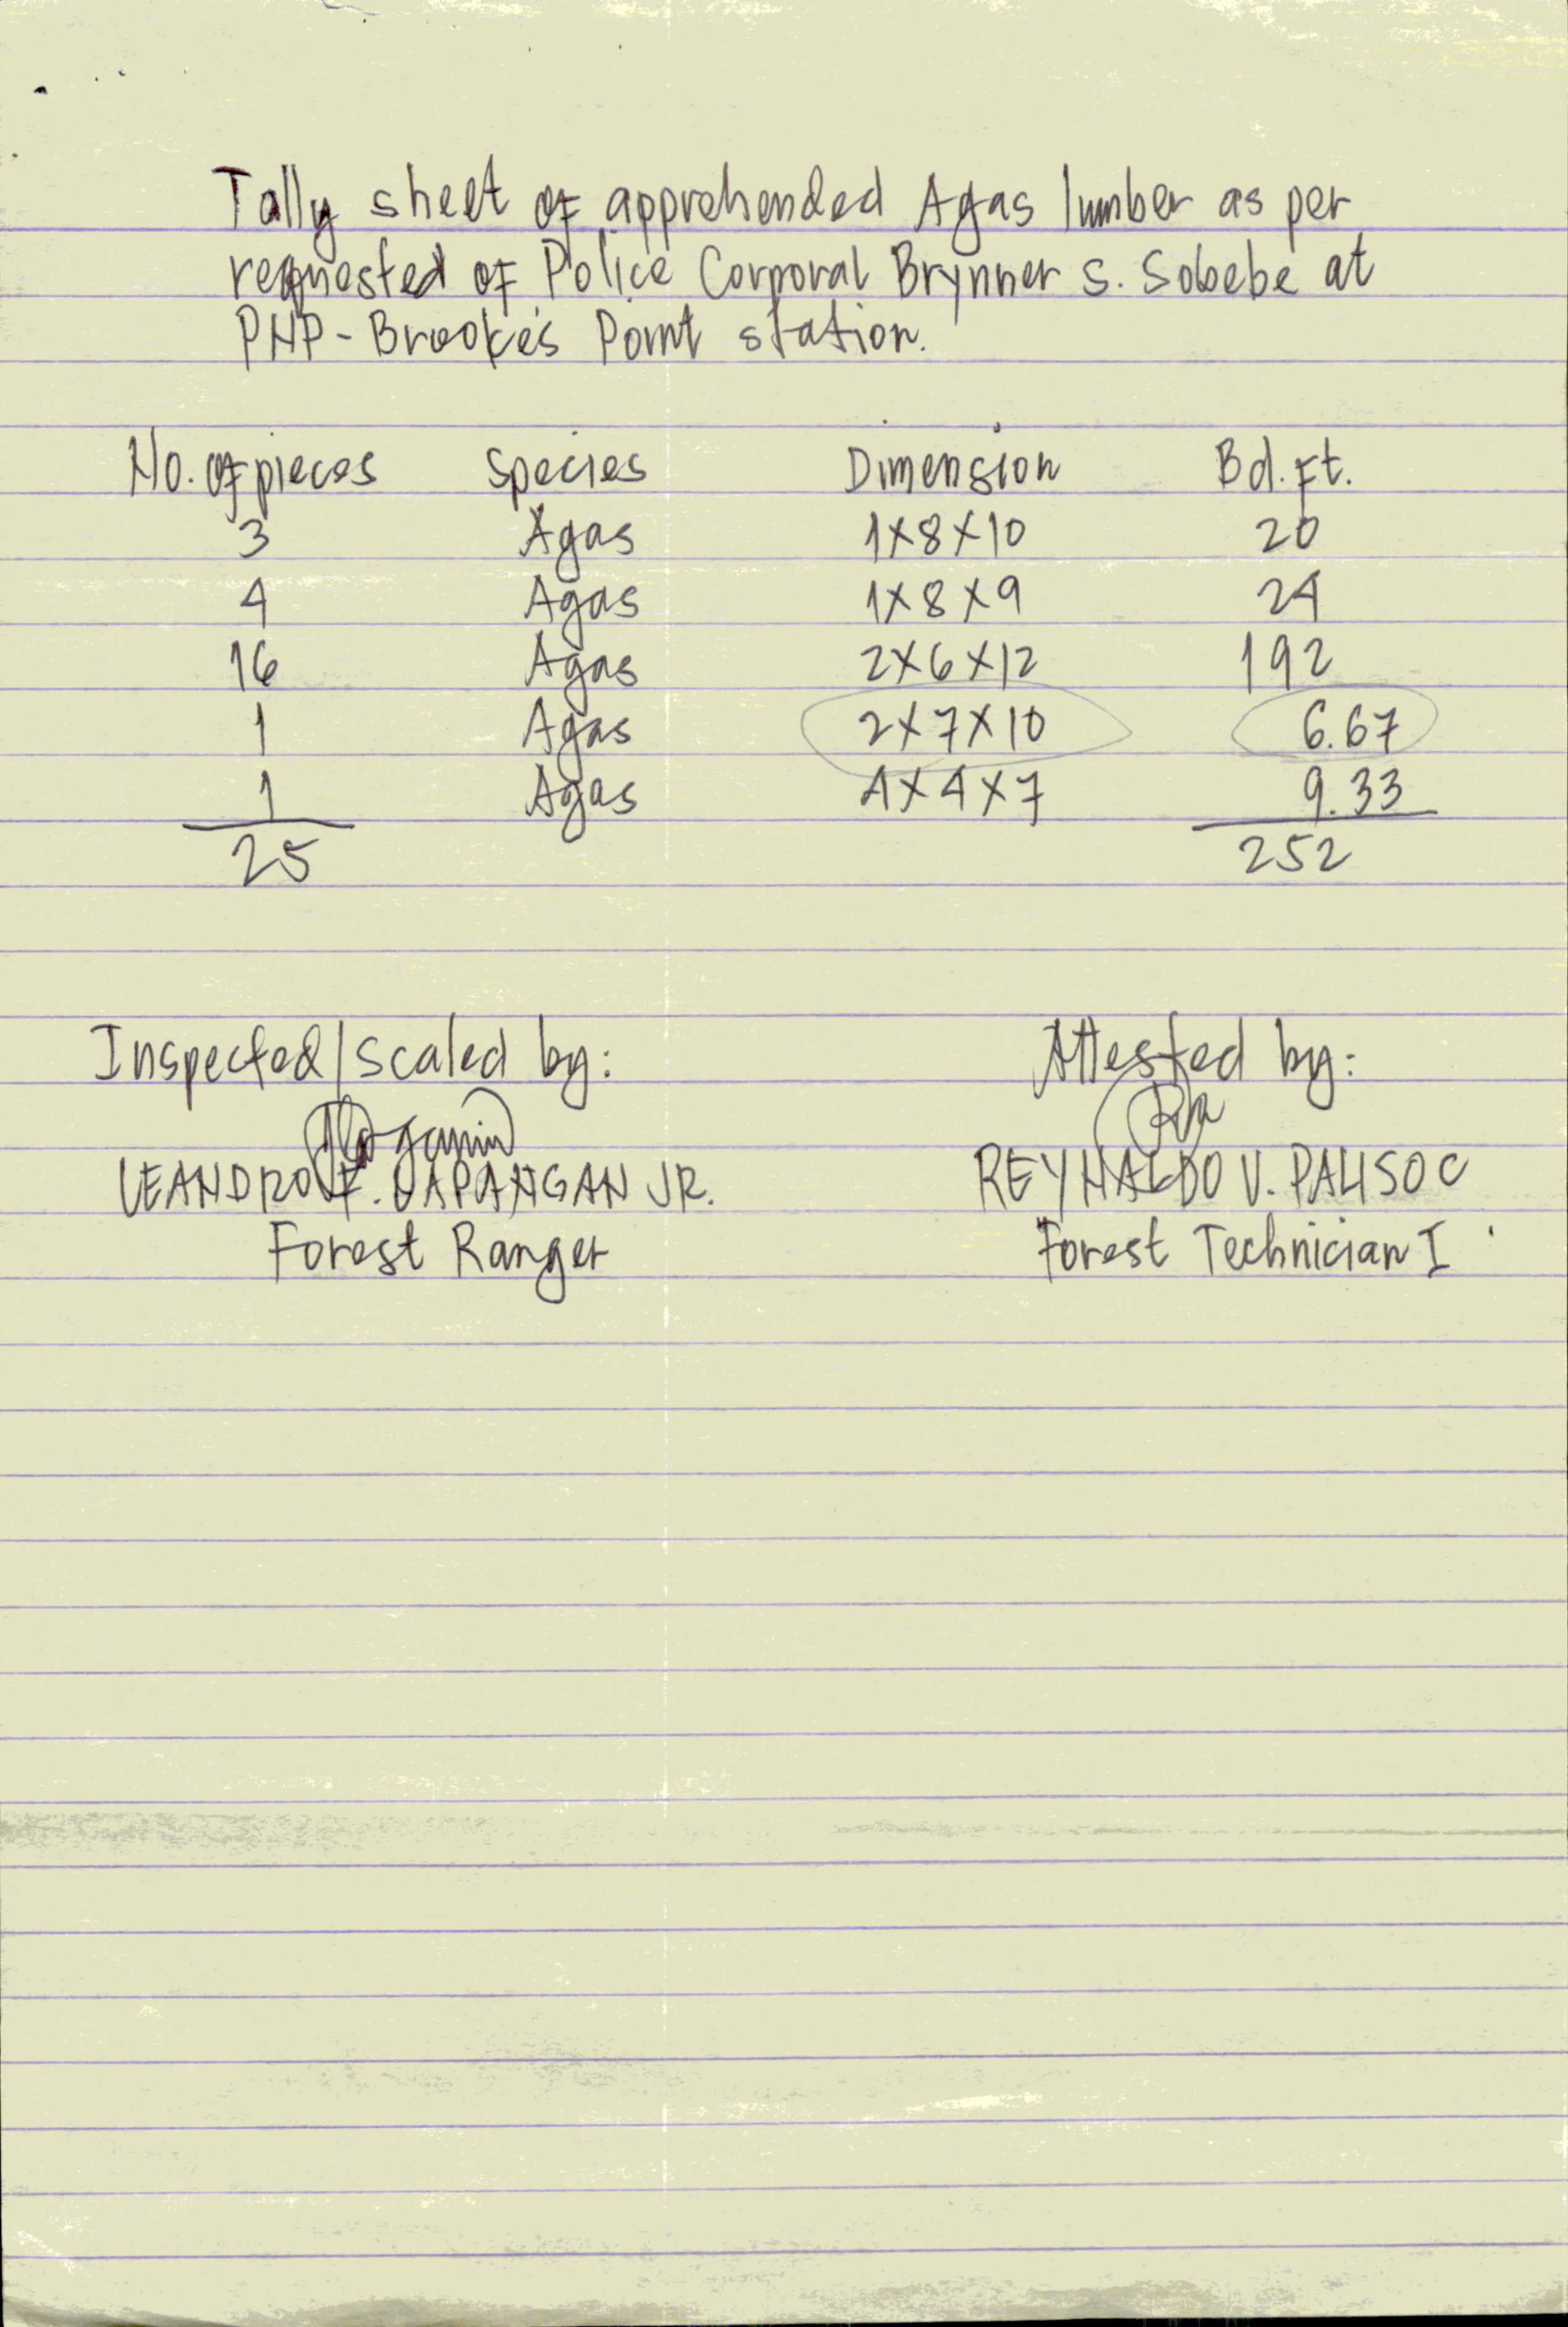 Tally sheet of apprehended Agas lumber as per
requested of Police Corporal Brynner S. Sobebe at
PNP-Brooke's Point station.
No. of pieces Species Dimension Bd. Ft.
3 Agas 1x8x10 20
4 Agas 1x8x9 24
16 Agas 2x6x12 192
1 Agas 2x7x10 6.67
1 Agas 4x4x7 9.33
25 252
Inspected/scaled by: Attested by:
LEANDRO JR. REYNALDO V. PALISOC
Forest Ranger Forest Technician I